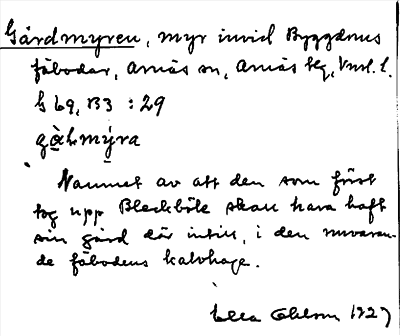 Gårdmyren, myr invid Byggdens
fäbodar, Arnäs sn, Arnäs tg, Vnrl. l.
G 69, B3 : 29
gàlmýra
Namnet av att den som först
tog upp Bleckböle skall hava haft
sin gård där intill, i den nuvaran-
de fäbodens kalvhage.
Ella Ohlson 1927